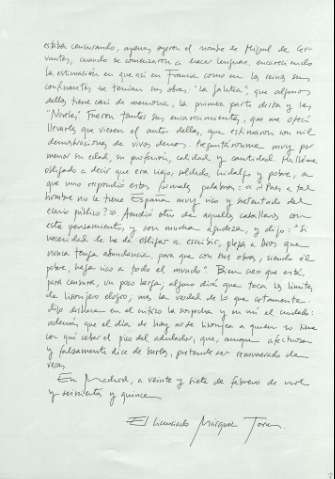 estaban censurando, apenas oyeron el nombre de Miguel de Cer-
vantes, cuando se comenzaron a hacer lenguas, encareciendo
la estimación en que así en Francia como en los reinos sus
confinantes se tenían sus obras: "La Galatea", que alguno
dellos tiene casi de memoria, la primera parte désta y las
"Novelas". Fueron tantos sus encarecimientos, que me ofrecí
llevarles que viesen el autor dellas, que estimaron con mil
demostraciones de vivos deseos. Preguntáronme muy por
menor su edad, su profesión, calidad y cantidad. Halléme
obligado a decir que era viejo, soldado, hidalgo y pobre, a
que uno respondió estas formales palabras: "Pues ¿a tal
hombre no le tiene España muy rico y sustentado del
erario público?" Acudió otro de aquellos caballeros con
este pensamiento, y con mucha agudeza, y dijo: "Si
necesidad le ha de obligar a escribir, plega a Dios que
nunca tenga abundancia, para que con sus obras, siendo él
pobre, haga rico a todo el mundo". Bien creo que está,
para censura, un poco larga; alguno dirá que toca los límites
de lisonjero elogio; mas la verdad de lo que cortamente
digo deshace en el crítico la sospecha y en mí el cuidado:
además que el día de hoy no se lisonjea a quien no tiene
con qué cebar el pico del adulador, que, aunque afectuosa
y falsamente dice de burlas, pretende ser remunerado de
veras.
En Madrid, a veinte y siete de febrero de mil
y seiscientos y quince.
El Licenciado Márquez Torres